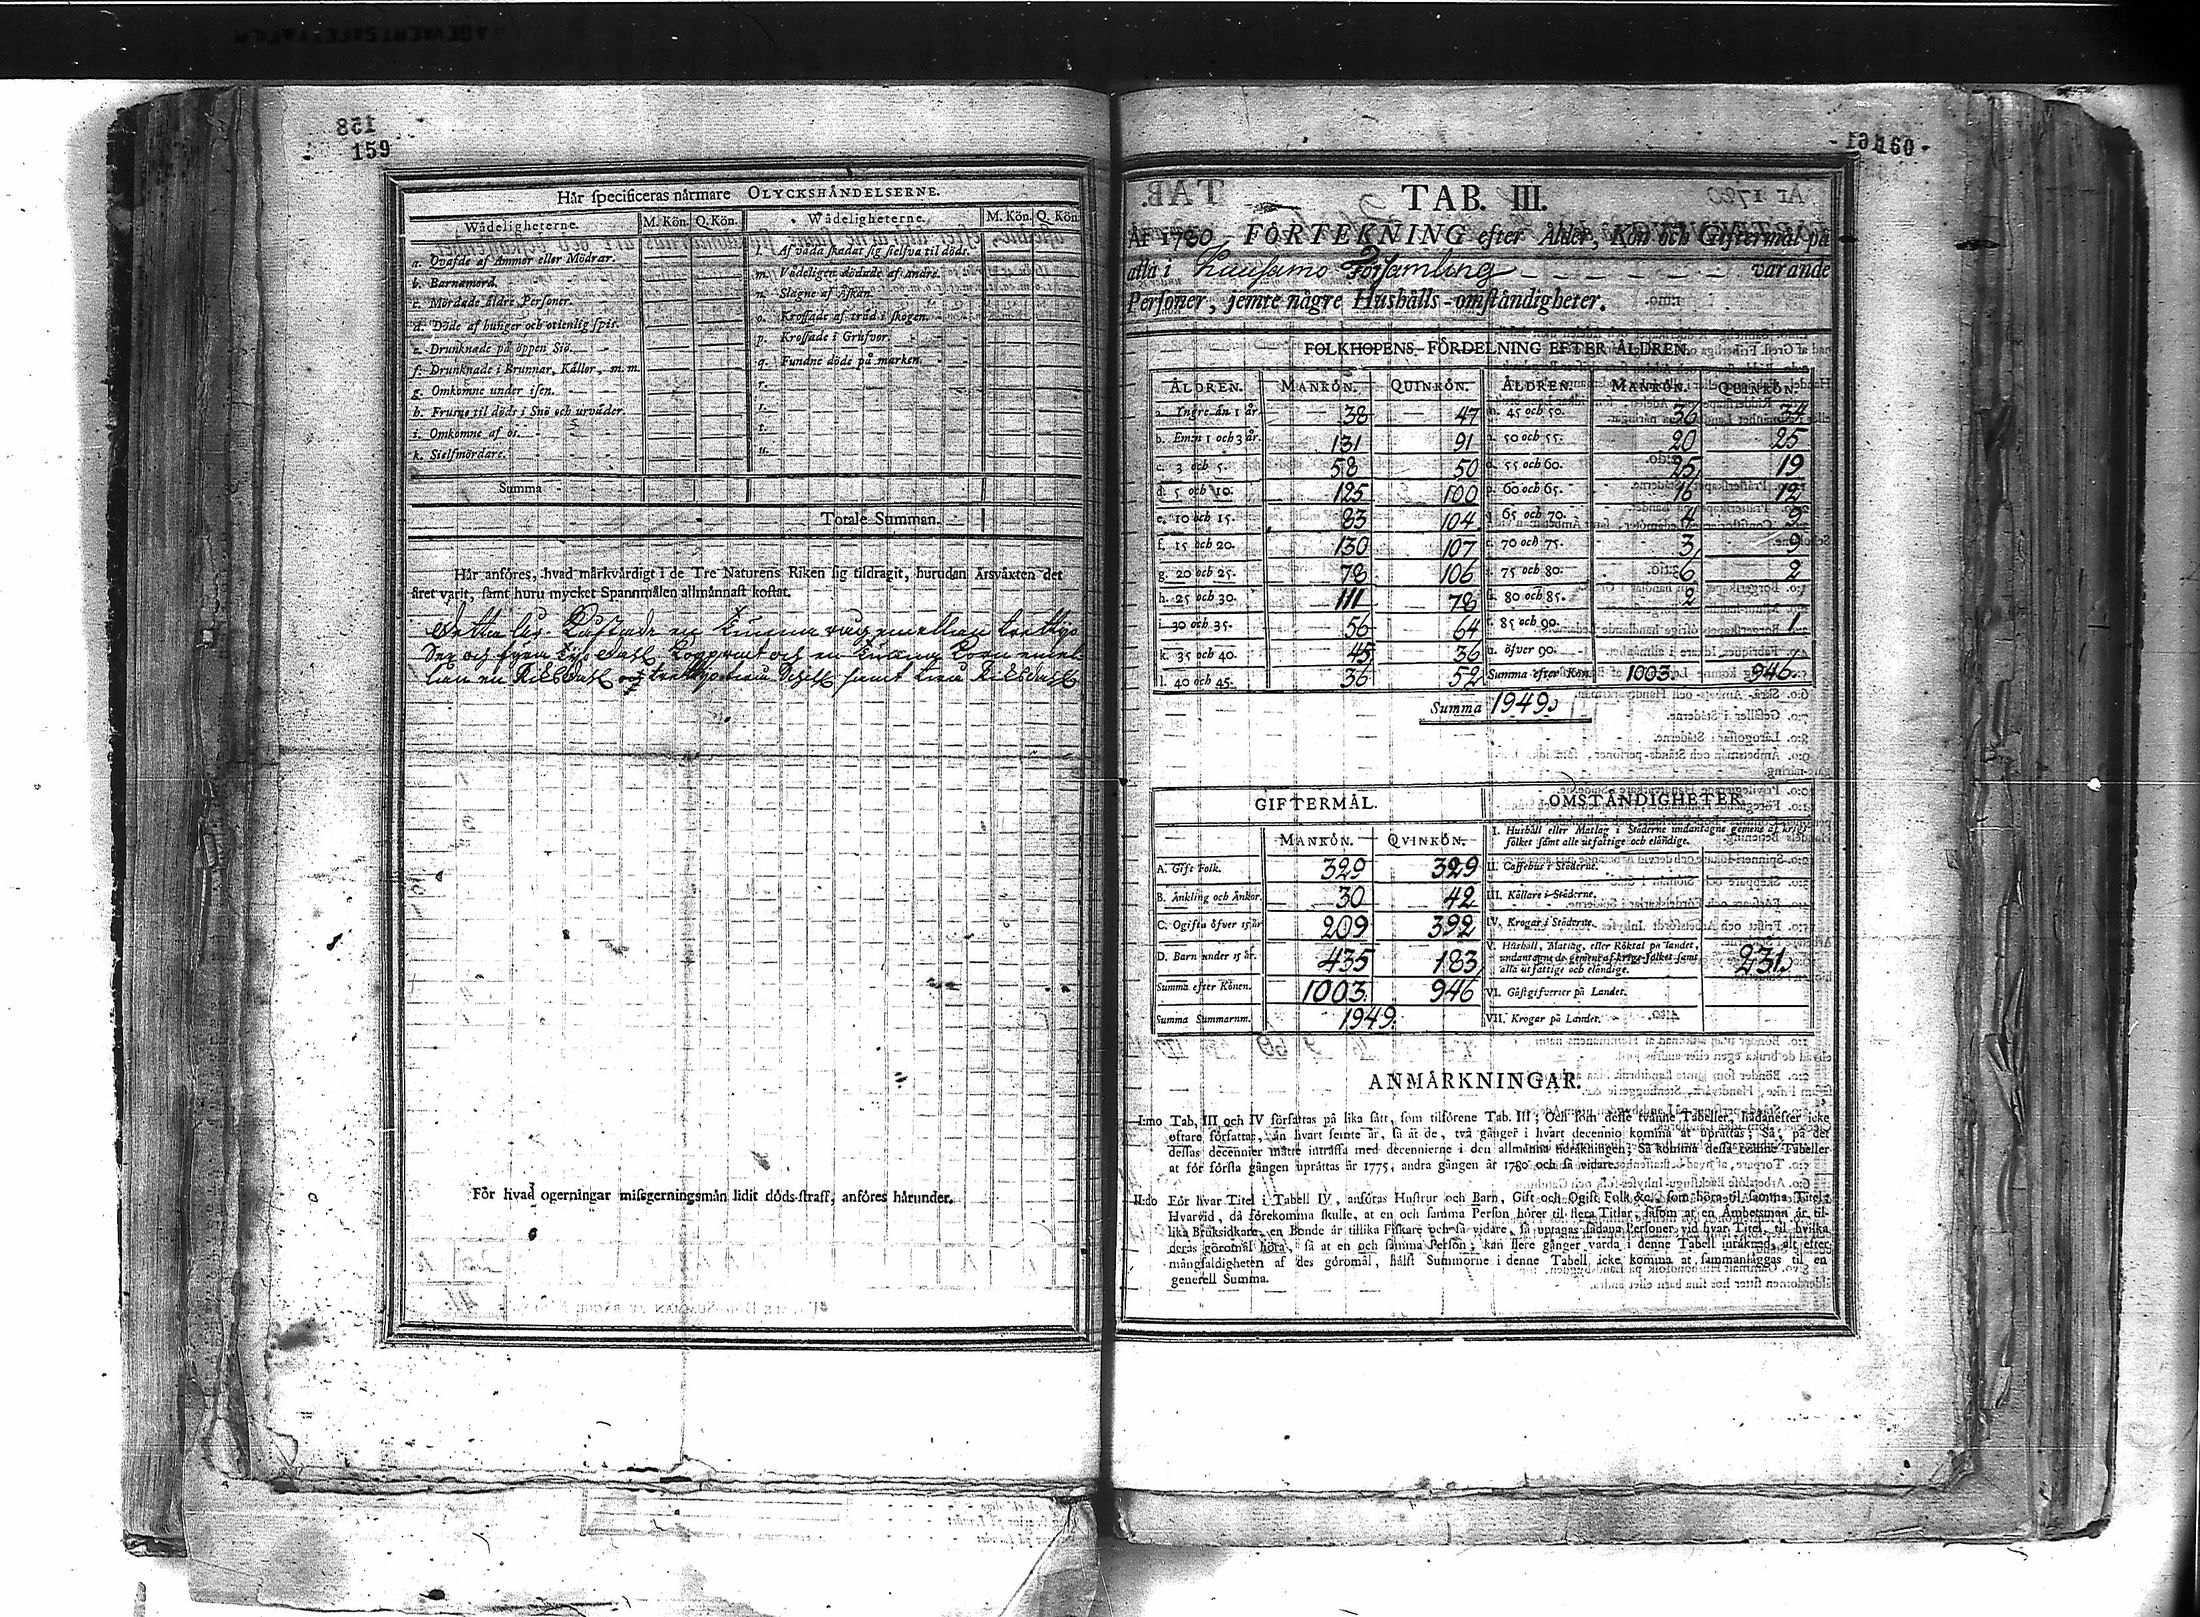 158
159
Här specificeras närmare OLYCKSHÄNDELSERNE.
Wådeligheterne. M. Kön. Q. Kön. Wådeligheterne. M. Kön. Q. Kön.
a. Qvafde af Ammor eller Mödrar.
b. Barnamord.
c. Mördade äldre Personer.
d. Döde af hunger och otienlig spis.
e. Drunknade på öppen Siö.
f. Drunknade i Brunnar, Källor, m. m.
g. Omkomne under isen.
h. Frusne til döds i Snö och urväder.
i. Omkomne af os.
k. Sielfmördare.
l. Af våda skadat sig sielfva til döds.
m. Vådeligen dödade af andra.
n. Slagne af Åskan.
o. Krossade af träd i skogen.
p. Krossade i Grufvor.
q. Fundne döde på marken.
r.
s.
t.
u.
Summa
Totale Summan.
Här anföres, hvad märkvärdigt i de Tre Naturens Riken sig tildragit, hurudan Årsväxten det
året varit, samt huru mycket Spannmålen allmännast kostat.
en Tunna råg emellan trettijo
Sex och fyra och en Tunna Korn emel
lan en Riksdahl och samt Riksdahl
För hvad ogerningar missgerningsmän lidit döds-straff, anföres härunder.
160
TAB. III.
År 1780 FÖRTEKNING efter Ålder, Kön och Giftermål på
alla i Kusamo Församling varande
Personer, jemte någre Hushålls-omständigheter.
FOLKHOPENS FÖRDELNING EFTER ÅLDREN.
ÅLDREN. MANKÖN. QUINKÖN. ÅLDREN. MANKÖN. QUINKÖN.
a. Yngre än 1 år. 38 47 m. 45 och 50. 36 34
b. Emn 1 och 3 år. 131 91 n. 50 och 55. 20 25
c. 3 och 5. 58 50 o. 55 och 60. 25 19
d. 5 och 10. 125 100 p. 60 och 65. 16 12
e. 10 och 15. 83 104 q. 65 och 70. 4 9
f. 15 och 20. 130 107 r. 70 och 75. 3 9
g. 20 och 25. 78 106 s. 75 och 80. 6 2
h. 25 och 30. 111 78 t. 80 och 85. 2
i. 30 och 35. 56 64 85 och 90. 1
k. 35 och 40. 45 36 u. öfver 90.
l. 40 och 45. 36 52 Summa efter Kön. 1003. 946.
Summa 1949.
GIFTERMÅL. OMSTÄNDIGHETER.
MANKÖN. QVINKÖN.
A. Gift Folk. 329 329
B. Änkling och Änkor. 30 42
C. Ogifta öfver 15 år 209 392
D. Barn under 15 år. 435 183
Summa efter Könen. 1003. 946
Summa Summarum. 1949.
I. Hushåll eller Matlag i Städerne undantagne gemene af krigs-
folket samt alle utfattige och eländige.
II. Caffehus i Städerne.
III. Källare i Städerne.
IV. Krogar i Städerne.
V. Hushåll, Matlag, eller Röktal på landet,
undantagne de gemene af krigs-folket samt
alla utfattige och eländige. 231.
VI. Gästgifverier på Landet.
VII. Krogar på Landet.
ANMÄRKNINGAR.
I:mo Tab. III och IV författas på lika sätt, som tilförene Tab. III; Och som desse tvänne Tabeller, hädanefter icke
oftare författas, än hvart femte år, så at de, två gånger i hvart decennio komma at uprättas; Så, på det
dessas decennier måtte inträffa med decennierne i den allmänna tidräkningen; Så komma dessa tvänne Tabeller
at för första gången uprättas år 1775, andra gången år 1780 och så vidare.
II:do För hvar Titel i Tabell IV, anföras Hustrur och Barn, Gift och Ogift Folk &c. som höra til samma Titel;
Hvarvid, då förekomma skulle, at en och samma Person hörer til flera Titlar, såsom at en Ämbetsman är til-
lika Bruksidkare, en Bonde är tillika Fiskare och så vidare, så uptagas sådana Personer vid hvar Titel, til hvilka
deras göromål höra, så at en och samma Person, kan flere gånger varda i denne Tabell inräknad, alt efter
mångfaldigheten af des göromål, hälst Summorne i denne Tabell icke komma at sammanläggas til en
generell Summa.